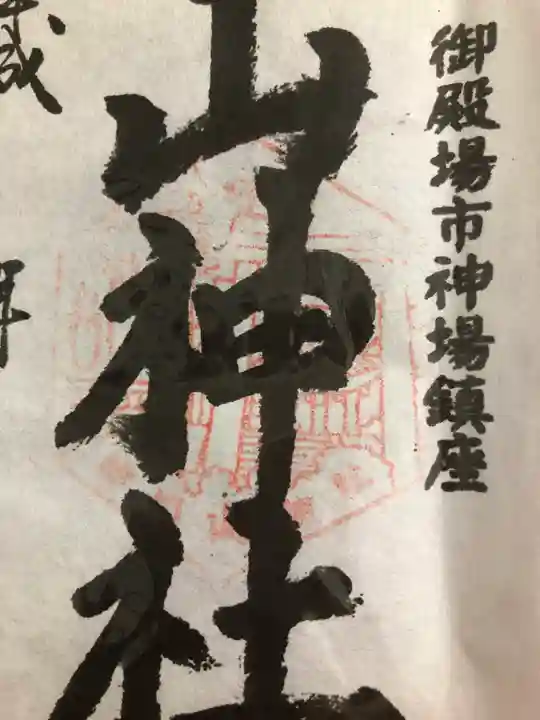 御殿場市神場鎮座
山神社
拝